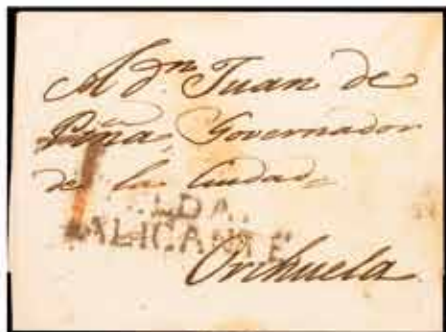 A Dn. Juan de
Peña, Governador
de la Ciudad
ALICANTE
Orihuela.